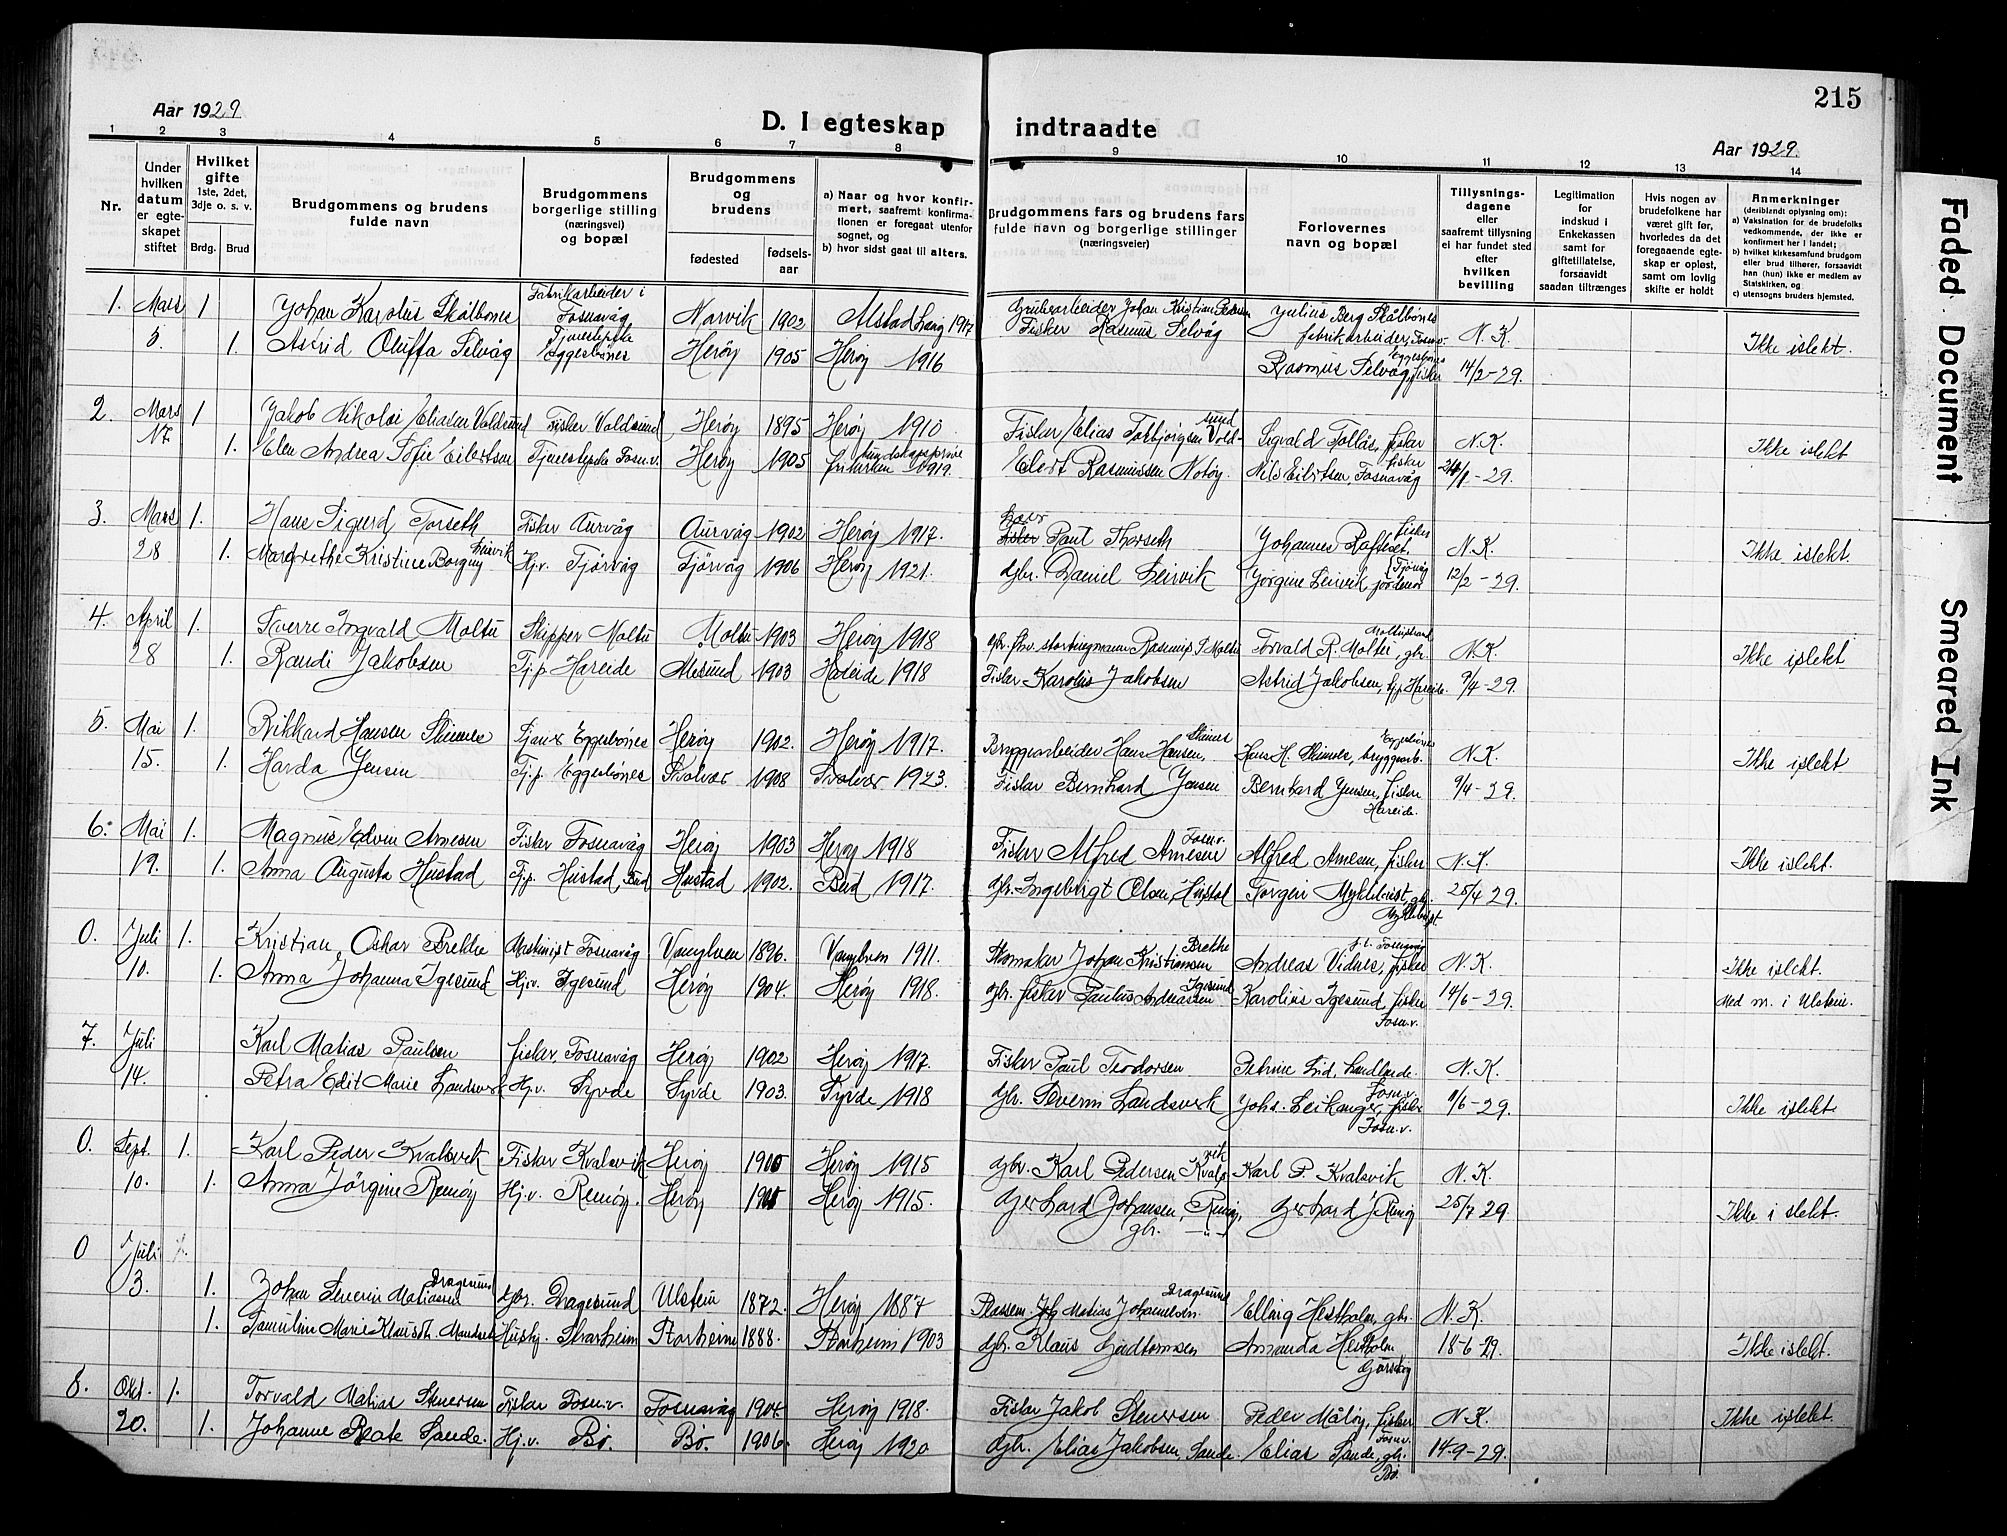 215
Aar 1929
D. I egteskap indtraadte
Aar 1929.
1 2 3 4 5 6 7 8 9 10 11 12 13 14
Nr.
Under hvilken datum er egteskapet stiftet
Hvilket gifte 1ste, 2det, 3dje o. s. v.
Brdg. Brud
Brudgommens og brudens fulde navn
Brudgommens borgerlige stilling (næringsvei) og bopæl
Brudgommens og brudens
fødested fødselsaar
a) Naar og hvor konfirmert, saafremt konfirmationen er foregaat utenfor sognet, og
b) hvor sidst gaat til alters.
Brudgommens fars og brudens fars fulde navn og borgerlige stillinger (næringsveier)
Forlovernes navn og bopæl
Tillysningsdagene eller saafremt tillysning ei har fundet sted efter hvilken bevilling
Legitimation for indskud i Enkekassen samt for giftetillatelse, forsaavidt saadan tiltrænges
Hvis nogen av brudefolkene har været gift før, hvorledes da det foregaaende egteskap er opløst, samt om lovlig skifte er holdt
Anmerkninger (deriblandt oplysning om):
a) Vaksination for de brudefolks vedkommende, der ikke er konfirmert her i landet;
b) hvilket kirkesamfund brudgom eller brud tilhører, forsaavidt han (hun) ikke er medlem av Statskirken, og
c) utensogns bruders hjemsted.
1. Mars 1 Johan Karolus Skålbones Fabrikarbeider i Fosnavåg Narvik 1902 Alstadhaug 1917 Grubearbeider Johan Kristian Pedersen Julius Berg Skålbones fabrikarbeider, Fosnv. N.K.
5. 1. Astrid Oluffa Selvåg Tjenestepike Eggesbönes Herøy 1905 Herøy 1916 Fisker Rasmus Selvåg Rasmus Selvåg, fisker Eggesbönes 14/2-29. Ikke i slekt.
2. Mars 1 Jakob Nikolai Eliasen Voldsund Fisker Voldsund Herøy 1895 Herøy 1910 Fisker Elias Torbjörgsen Voldsund Sigvald Tollås, fisker N.K. Ikke islekt
17 1. Elen Andrea Sofie Eilertsen Tjenestepike Fosn.v. Herøy 1905 kundskapsprøve frikirken 1919. Elert Rasmussen Notøy. Nils Eilertsen, Fosnavåg fisker 24/1-29.
3. Mars 1. Hans Sigurd Torseth Fisker Aurvåg Aurvåg 1902 Herøy 1917. Paul Thorseth Johannes fisker N.K. Ikke islekt
28 1. Margrethe Kristine Borgny Leirvik Hj.v. Tjörvåg Tjörvåg 1906 Herøy 1921. Gbr. Daniel Leirvik Jorgine Leirvik, jordmor Tjörvåg 12/2-29.
4. April 1. Sverre Ingvald Moltu Skipper Moltu Moltu 1903 Herøy 1918 gbr. fhv. stortingsmann Rasmus S. Moltu Torvald R. Moltu, gbr. Moltustrand N.K. Ikke islekt
28 1. Randi Jakobsen Tj.p Hareide Ålesund 1903 Hareide 1918 Fisker Karolus Jakobsen Astrid Jakobsen, tj.p. Hareide. 9/4-29.
5. Mai 1. Rikkard Hansen Skinnes Tjener Eggesbönes Herøy 1902. Herøy 1917. Bryggearbeider Hans Hansen Skinnes, Hans H. Skinnes, bryggearb. Eggesbönes N.K. Ikke islekt
15. 1. Harda Jensen Tj.p. Eggesbönes Svolvær 1908 Svolvær 1923. Fisker Bernhard Jensen Bernhard Jensen, fisker Hareide. 9/4-29.
6. Mai 1. Magnus Edvin Arnesen Fisker Fosnavåg Herøy 1903 Herøy 1918 Fisker Alfred Arnesen Fosn.v. Alfred Arnesen, fisker N.K. Ikke islekt.
19. 1. Anna Augusta Hustad Tj.p. Hustad, Bud Hustad 1902. Bud 1917. Gbr. Ingebrigt Olsen Hustad Torgeir Myklebust, gbr. Myklebust 25/4 29.
0. Juli 1. Kristian Oskar Brekke Maskinist Fosnavåg Vanylven 1896. Vanylven 1911. Skomaker Johan Kristiansen Brekke Andreas Vidnes, fisker Fosnavåg N.K. Ikke islekt.
10. 1. Anna Johanna Igesund Hj.v. Igesund Herøy 1904. Herøy 1918. Gbr. fisker Paulus Andreassen Igesund Karolius Igesund, fisker Fosn.v. 14/6-29. Med m. i Ulstein.
7. Juli Karl Matias Paulsen fisker Fosnavåg Herøy 1902 Herøy 1917. Fisker Paul Teodorsen Petrine Eid, Fosn.v. N.K.
14. Petra Edit Marie Landsverk Hj.v. Syvde Syvde 1903. Syvde 1918 Gbr. Severin Landsverk Johs. Leikanger, fisker Fosn.v. 11/6-29. Ikke islekt
0. Sept. 1. Karl Peder Kvalsvik Fisker Kvalsvik Herøy 1900 Herøy 1915 Gbr. Karl Pedersen Kvalsvik Karl P. Kvalsvik N.K
10. 1. Anna Jörgine Remøy Hj.v. Remøy. Herøy Herøy 1915. Gerhard Johansen, Remøy, gbr. Gerhard J Remøy 25/7 29. Ikke i slekt.
0 Juli
3. 1. Johan Severin Matiassen Dragesund Gbr. Dragesund Ulstein 1872. Herøy 1887 Plassem. Matias Johannesen Dragesund Elling Hestholm, gbr. N.K.
1. Husbj. Storheim Storheim 1888. Storheim 1903 Gbr. Klaus Amanda Hestholm 18-6-29. Ikke islekt.
8. Okt. 1. Torvald Matias Stenersen Fisker Fosn.v. Fosnavåg 1904. Herøy 1918. Fisker Jakob Stenersen Peder Måløy, fisker Fosn.v. N.K. Ikke islekt.
20. 1. Johanne Beate Sande. Hj.v. Bø. Bø. 1906. Herøy 1920 Gbr. Elias Jakobsen Sande. Elias Sande, gbr. Bø. 14-9-29.
Faded Document
Smeared Ink